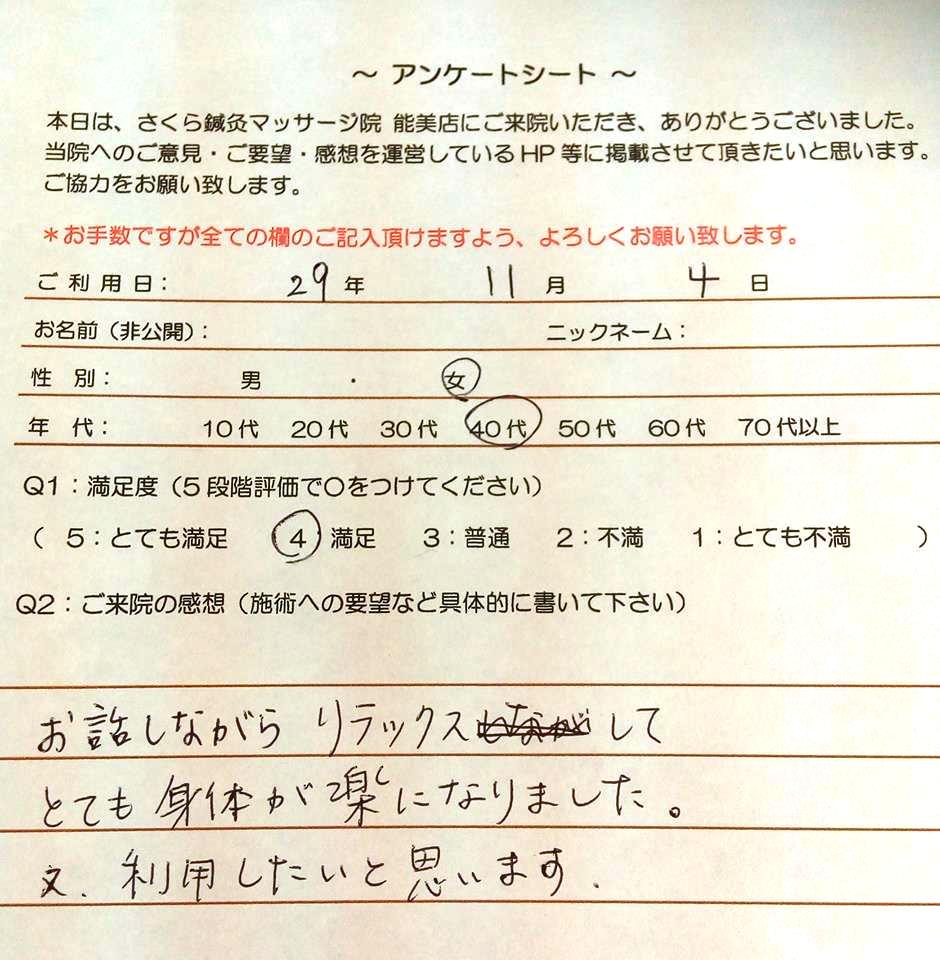 ～ アンケートシート ～
本日は、さくら鍼灸マッサージ院 能美店にご来院いただき、ありがとうございました。
当院へのご意見・ご要望・感想を運営しているHP等に掲載させて頂きたいと思います。
ご協力をお願い致します。
＊お手数ですが全ての欄のご記入頂けますよう、よろしくお願い致します。
ご利用日： 29年 11月 4日
お名前（非公開）： ニックネーム：
性 別： 男 ・ 女
年 代： 10代 20代 30代 40代 50代 60代 70代以上
Q1：満足度（5段階評価で○をつけてください）
（ 5：とても満足 4 満足 3：普通 2：不満 1：とても不満 ）
Q2：ご来院の感想（施術への要望など具体的に書いて下さい）
お話しながら リラックスして
とても身体が楽になりました。
又、利用したいと思います.